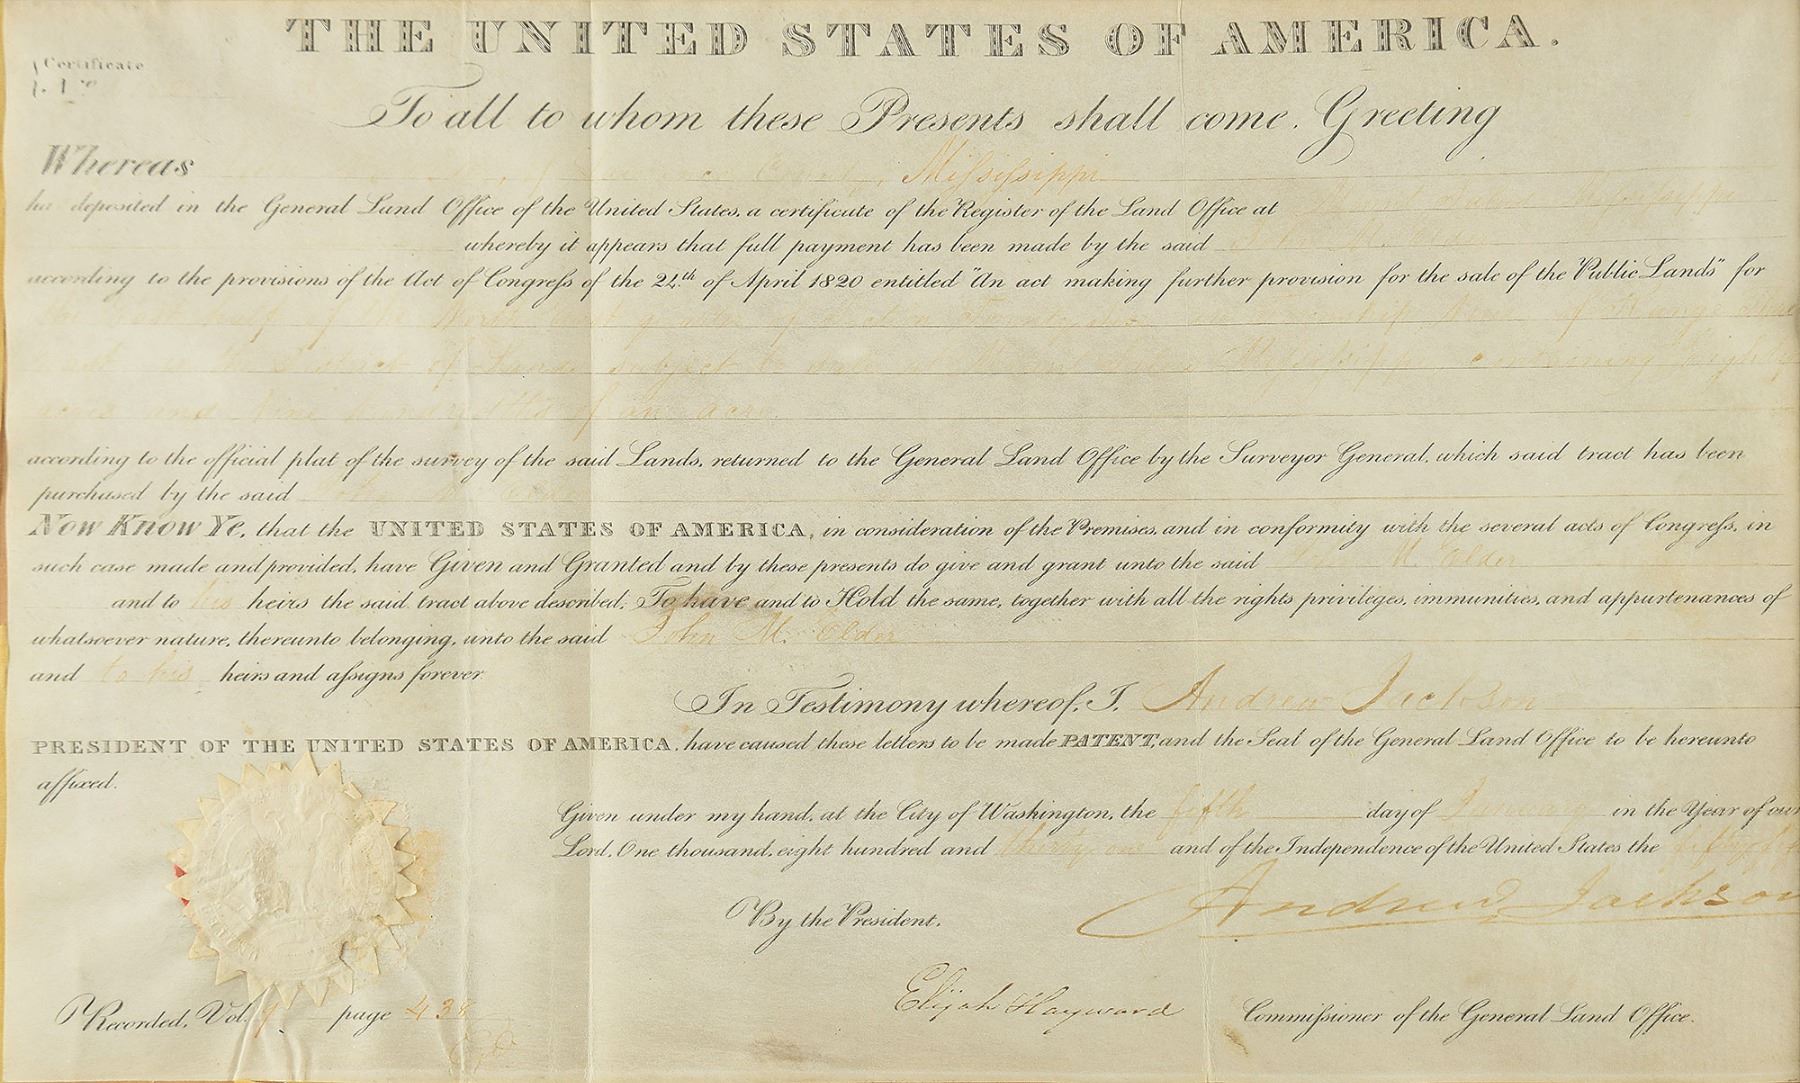 THE UNITED STATES OF AMERICA.
Certificate
To all to whom these Presents shall come, Greeting
Whereas County, Mississippi
ha deposited in the General Land Office of the United States, a certificate of the Register of the Land Office at Mississippi
whereby it appears that full payment has been made by the said
according to the provisions of the Act of Congress of the 24th of April 1820 entitled "An act making further provision for the sale of the Public Lands" for
half of the North quarter of section in Township of Range
in the District of Lands subject to sale at Mississippi, containing Eighty
acres and Nine hundredths of an acre.
according to the official plat of the survey of the said Lands, returned to the General Land Office by the Surveyor General, which said tract has been
purchased by the said John M. Elder
Now Know Ye, that the UNITED STATES OF AMERICA, in consideration of the Premises, and in conformity with the several acts of Congress, in
such case made and provided, have Given and Granted and by these presents do give and grant unto the said John M. Elder
and to his heirs the said tract above described; To have and to Hold the same, together with all the rights privileges, immunities, and appurtenances of
whatsoever nature, thereunto belonging, unto the said John M. Elder
and to his heirs and assigns forever
In Testimony whereof, I, Andrew Jackson
PRESIDENT OF THE UNITED STATES OF AMERICA, have caused these letters to be made PATENT, and the Seal of the General Land Office to be hereunto
affixed.
Given under my hand, at the City of Washington, the fifth day of January in the Year of our
Lord, One thousand, eight hundred and thirty one and of the Independence of the United States the fifty fifth
By the President, Andrew Jackson
Elijah Hayward Commissioner of the General Land Office.
Recorded, Vol. page 438